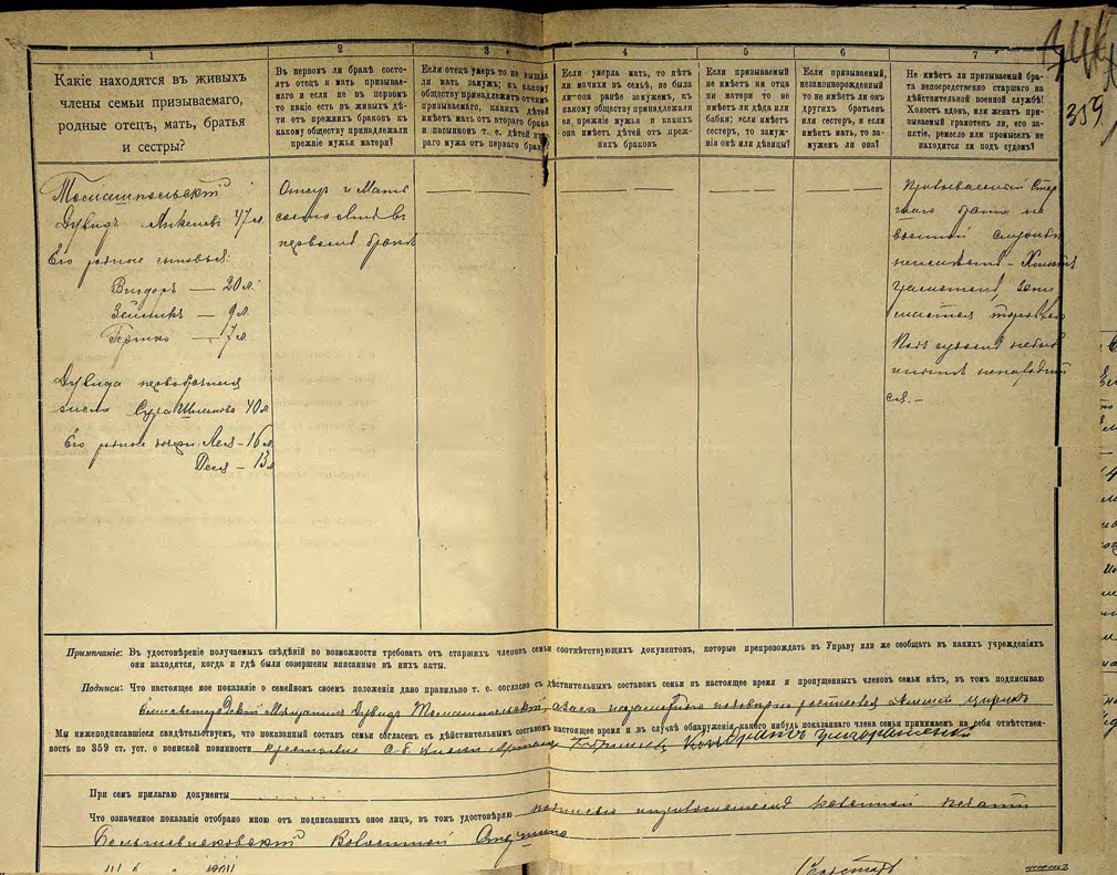 1 2 3 4 5 6 7
Какіе находятся въ живыхъ
члены семьи призываемаго,
родные отецъ, мать, братья
и сестры?
Въ первомъ ли бракѣ состо-
ятъ отецъ и мать призывае-
маго и если не въ первомъ
то какіе есть въ живыхъ дѣ-
ти отъ прежнихъ браковъ къ
какому обществу принадлежали
прежніе мужья матери?
Если отецъ умеръ то не вышла
ли мать замужъ; къ какому
обществу принадлежитъ отчимъ
призываемаго, какихъ дѣтей
имѣетъ мать отъ втораго брака
и пасынковъ т. е. дѣтей
раго мужа отъ перваго брака
Если умерла мать, то нѣтъ
ли мачихи въ семьѣ, не была
ли она ранѣе замужемъ, къ
какому обществу принадлежали
ея прежніе мужья и какихъ
она имѣетъ дѣтей отъ преж-
нихъ браковъ
Если призываемый
не имѣетъ ни отца
ни матери то не
имѣетъ ли дѣда или
бабки; если имѣетъ
сестеръ, то замуж-
нія онѣ или дѣвицы?
Если призываемый,
незаконнорожденный
то не имѣетъ ли онъ
другихъ братьевъ
или сестеръ, и если
имѣетъ мать, то за-
мужемъ ли она?
Не имѣетъ ли призываемый бра-
та непосредственно старшаго на
дѣйствительной военной службѣ?
Холостъ вдовъ, или женатъ при-
зываемый грамотенъ ли, его за-
нятіе, ремесло или промыселъ не
находится ли подъ судомъ?
359
Томашпольскій
Дувидъ Янкелевъ 47 л.
Его родные сыновья:
Вигдоръ — 20 л.
Зейликъ — 9 л.
Гершко — 7 л.
Дувида первобрачная
жена Сура Шлемова 40 л.
Его родные дочери: Лея – 16 л.
Песя – 13 л.
Отецъ и Мать
состоятъ въ
первомъ бракѣ
Призываемый Стар
шаго брата на
военной службѣ
неимѣетъ – Холостъ
грамотенъ, зани
мается торговлею
Подъ судомъ
ненаходит
ся. –
Примѣчаніе: Въ удостовѣреніе получаемыхъ свѣдѣній по возможности требовать отъ старшихъ членовъ семьи соотвѣтствующихъ документовъ, которые препровождать въ Управу или же сообщать въ какихъ учрежденіяхъ
они находятся, когда и гдѣ были совершены вписанные въ нихъ акты.
Подписи: Что настоящее мое показаніе о семейномъ своемъ положеніи дано правильно т. е. согласно съ дѣйствительнымъ составомъ семьи въ настоящее время и пропущенныхъ членовъ семьи нѣтъ, въ томъ подписываю
Елисаветградскій Мѣщанинъ Дувидъ Томашпольскій, а за него неграмотнаго по его
Мы нижеподписавшіеся свидѣтельствуемъ, что показанный составъ семьи согласенъ съ дѣйствительнымъ составомъ настоящее время и въ случаѣ обнаруженія какого нибудь показаннаго члена семьи принимаемъ на себя отвѣтствен-
ность по 359 ст. уст. о воинской повинности крестьяне
При семъ прилагаю документы
Что означенное показаніе отобрано мною отъ подписавшихъ оное лицъ, въ томъ удостовѣряю подписью и приложеніемъ казенной печати
Волостной Старшина